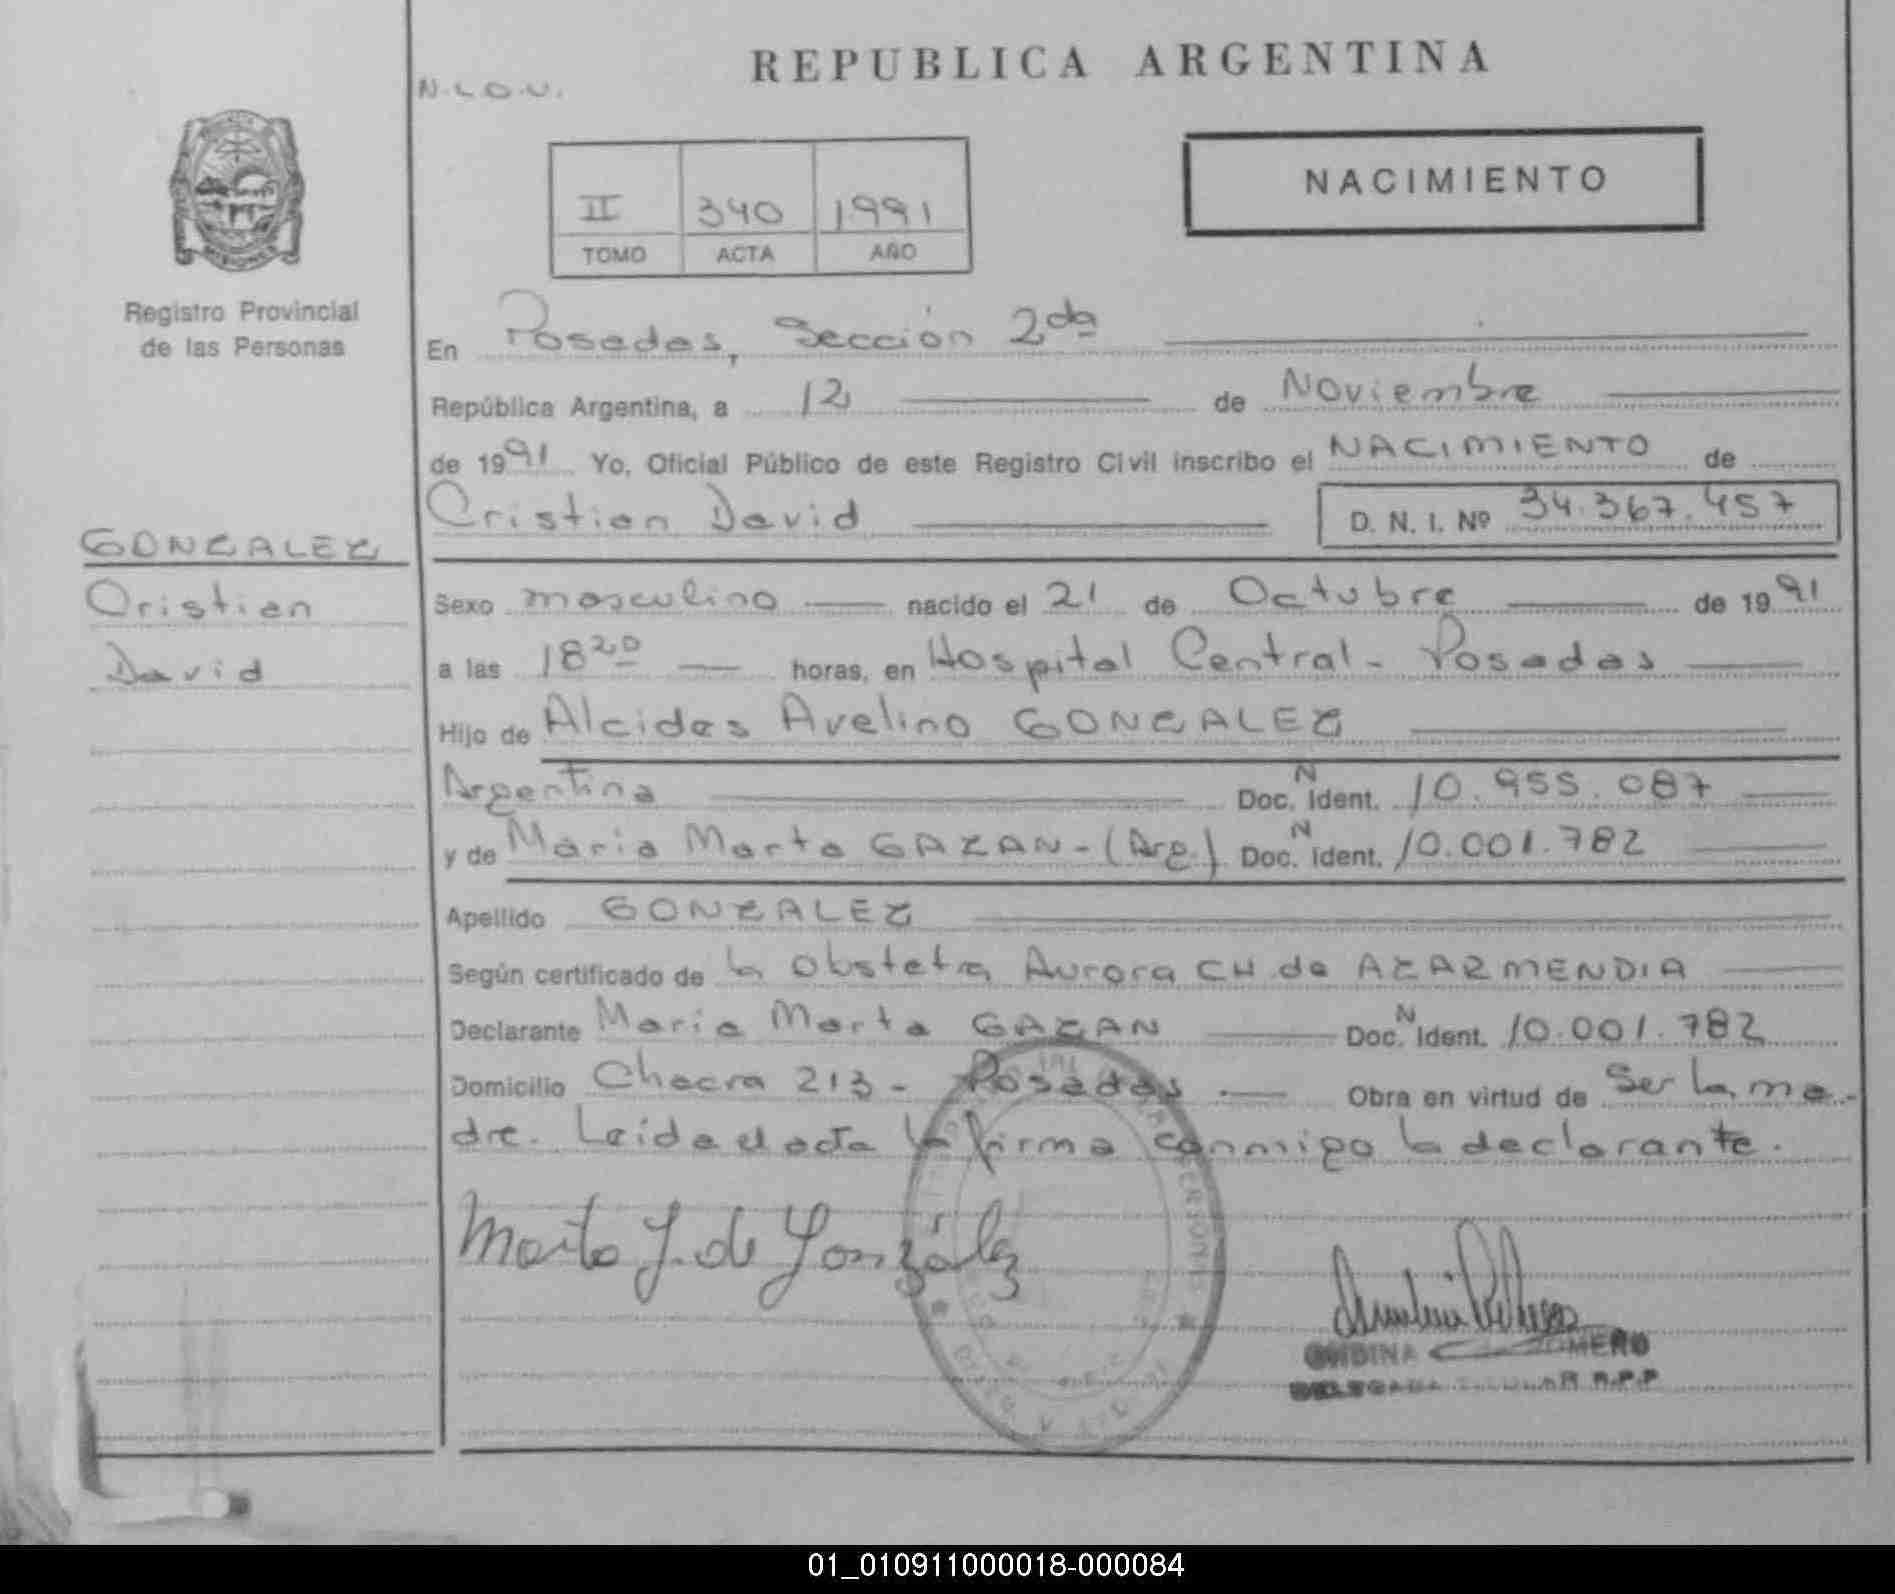 REPUBLICA ARGENTINA
N.L.O.V.
NACIMIENTO
II 340 1991
TOMO ACTA AÑO
MISIONES
Registro Provincial
de las Personas
En Posadas, Sección 2da
República Argentina, a 12 de Noviembre
de 1991 Yo, Oficial Público de este Registro Civil inscribo el NACIMIENTO de
Cristian David D. N. I. Nº 34.367.457
GONZALEZ
Cristian
David
Sexo masculino nacido el 21 de Octubre de 1991
a las 18 20 horas, en Hospital Central - Posadas
Hijo de Alcides Avelino GONZALEZ
Argentina Doc. N Ident. 10.955.087
y de María Marta GAZAN - (Arg.) Doc. N Ident. 10.001.782
Apellido GONZALEZ
Según certificado de la Obstetra Aurora CH. de AZARMENDIA
Declarante María Marta GAZAN Doc. N Ident. 10.001.782
Domicilio Chacra 213 - Posadas Obra en virtud de Ser la ma-
dre. Leida el acta la firma conmigo la declarante.
Marta G. de González
ROMERO
TITULAR R.P.P
01_010911000018-000084